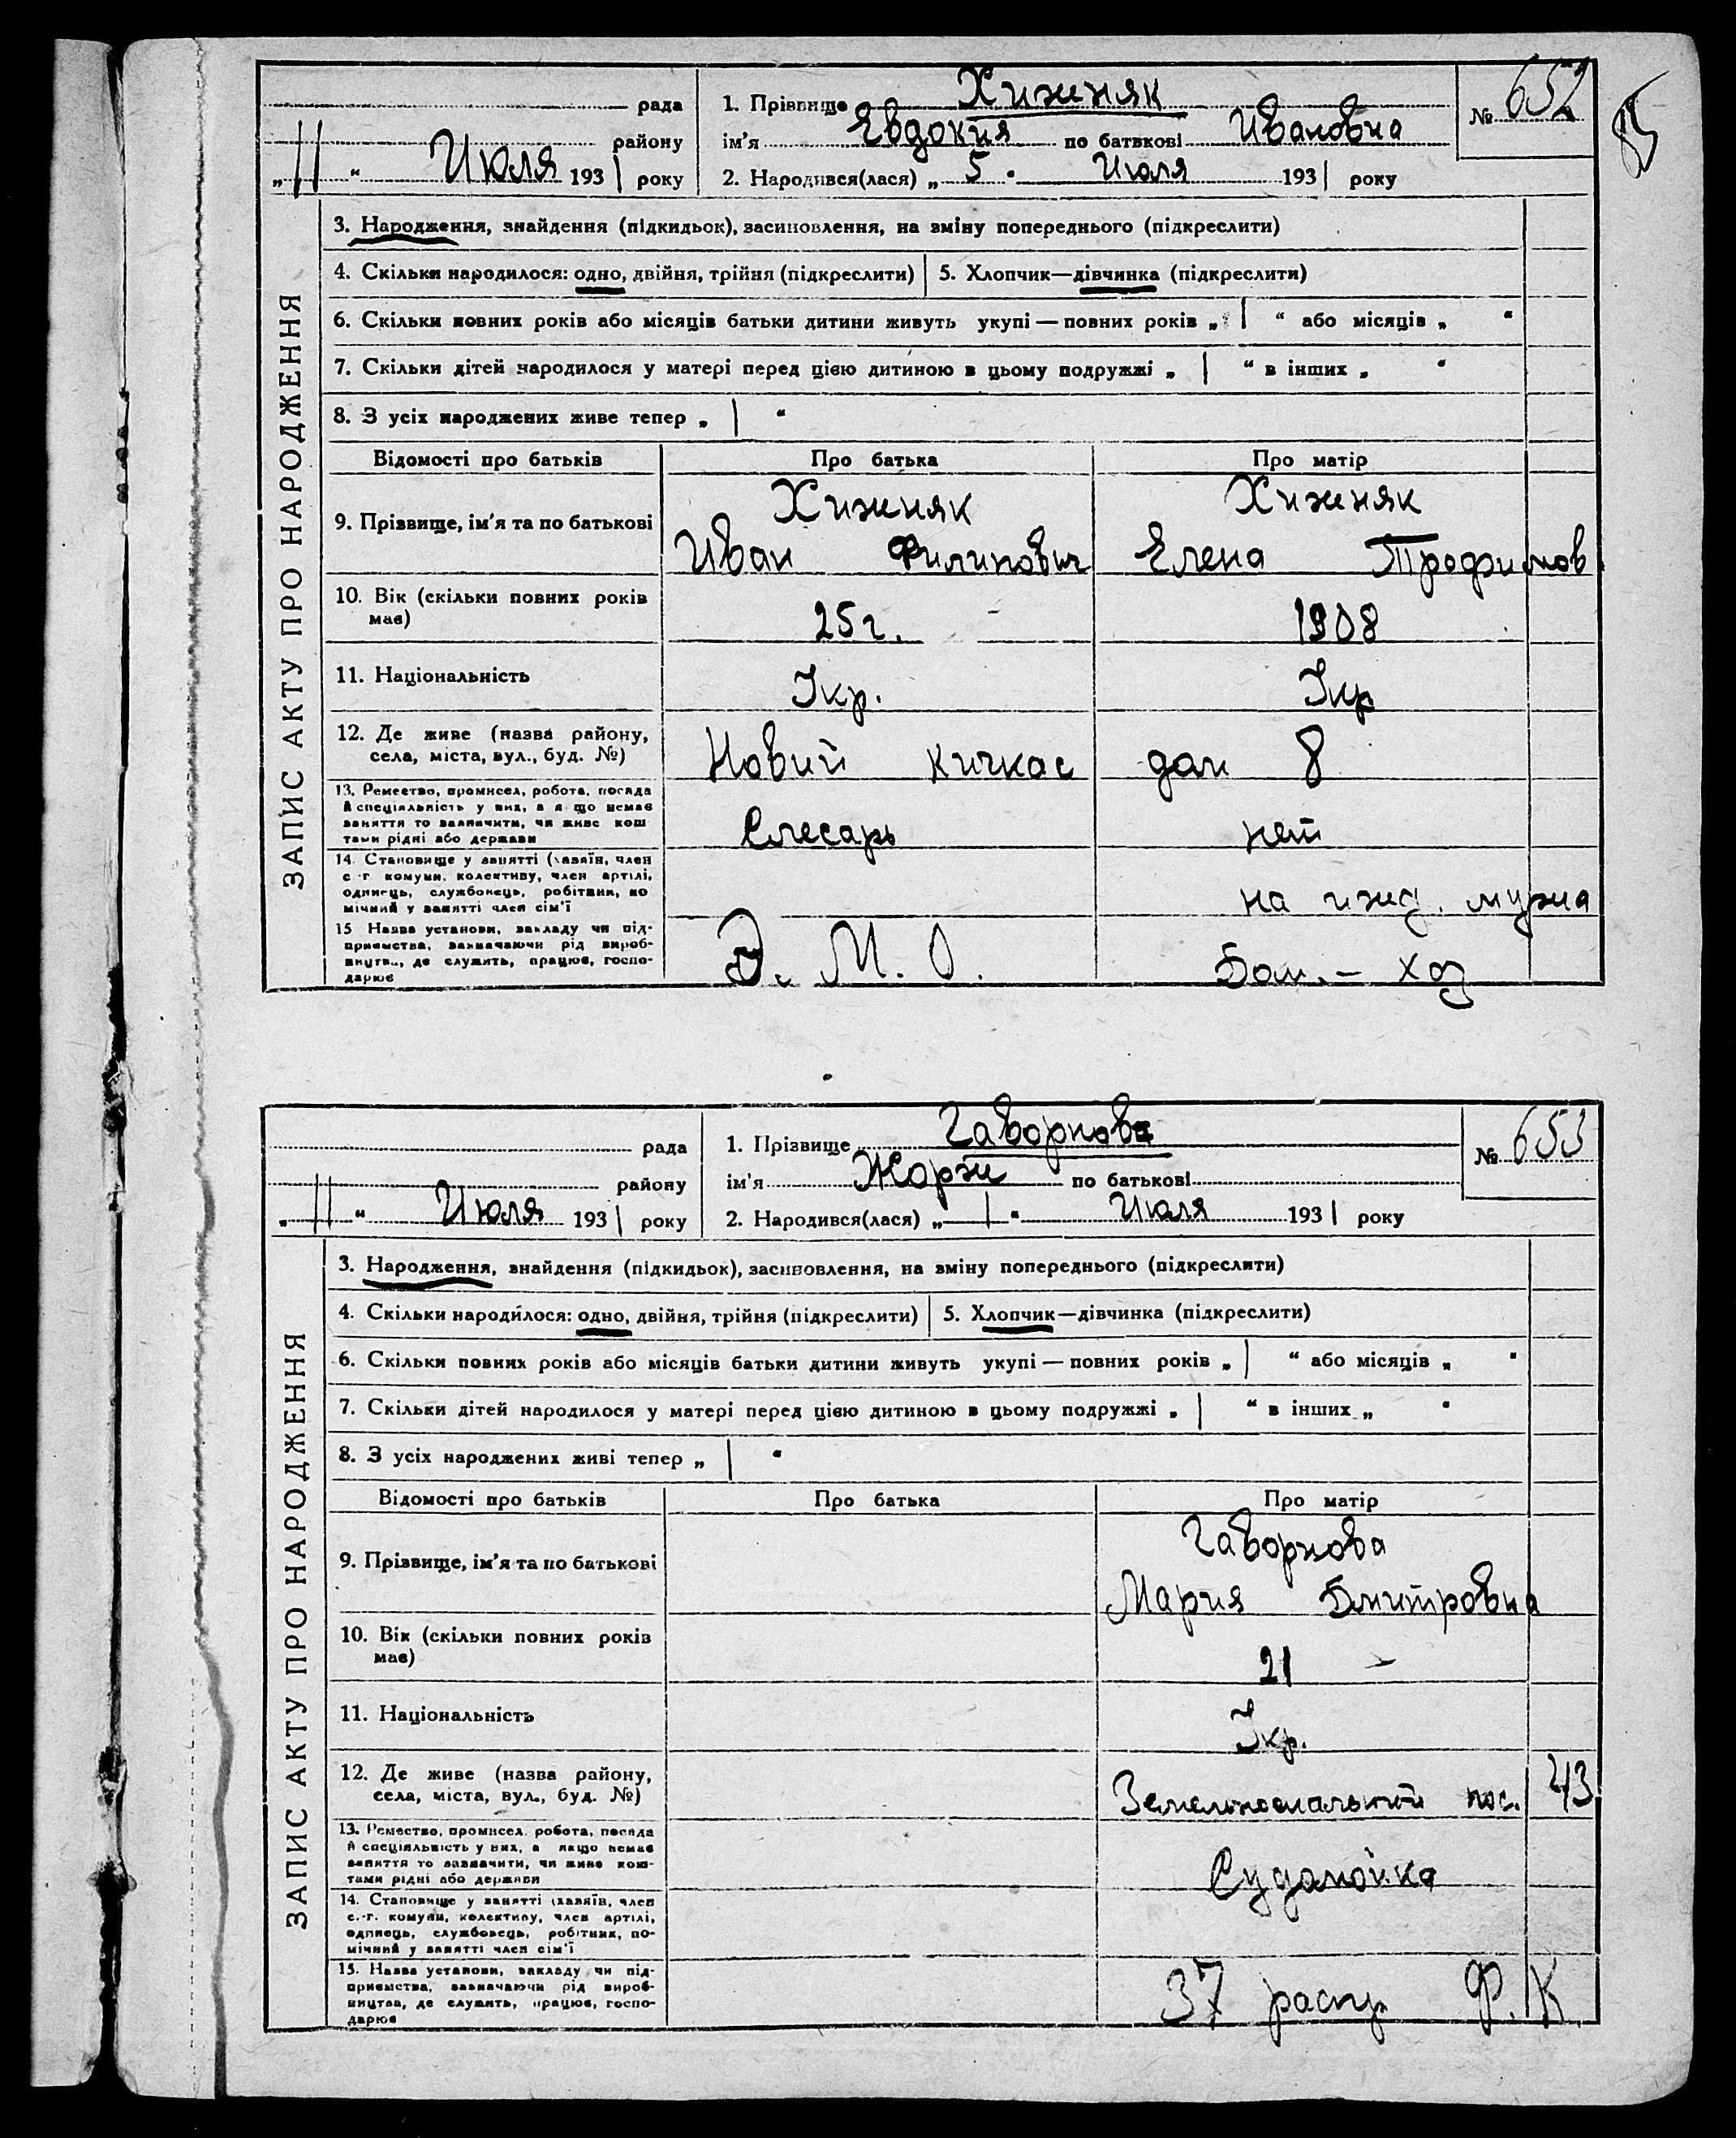 рада
1. Прізвище Хижняк
№ 652
району
ім'я Евдокия по батькові Ивановна
„ 11 “ Июля 1931 року
2. Народився(лася) „ 5 “ Июля 1931 року
ЗАПИС АКТУ ПРО НАРОДЖЕННЯ
3. Народження, знайдення (підкидьок), засиновлення, на зміну попереднього (підкреслити)
4. Скільки народилося: одно, двійня, трійня (підкреслити) 5. Хлопчик—дівчинка (підкреслити)
6. Скільки повних років або місяців батьки дитини живуть укупі — повних років „ 1 “ або місяців „ “
7. Скільки дітей народилося у матері перед цією дитиною в цьому подружжі „ 1 “ в інших „ “
8. З усіх народжених живе тепер „ 1 “
Відомості про батьків Про батька Про матір
9. Прізвище, ім'я та по батькові
Хижняк Хижняк
Иван Филипович Елена Трофимов
10. Вік (скільки повних років має)
25 г. 1908
11. Національність
Укр. Укр
12. Де живе (назва району, села, міста, вул., буд. №)
Новий Кичкас дом 8
13. Ремество, промисел, робота, посада
й спеціяльність у них, а якщо немає
заняття то зазначити, чи живе кош
тами рідні або держави
Слесарь нет
14. Становище у занятті (хазяїн, член
с.-г. комуни, колективу, член артілі,
одинець, службовець, робітник, по
мічний у занятті член сім'ї
на ижд. мужа
15 Назва установи, закладу чи під-
приємства, зазначаючи рід вироб-
ництва, де служить, працює, госпо-
дарює
Э. М. О. Дом. – хоз
рада
1. Прізвище Гаворнова
№ 653
району
ім'я Жорж по батькові
„ 11 “ Июля 1931 року
2. Народився(лася) „ 1 “ Июля 1931 року
ЗАПИС АКТУ ПРО НАРОДЖЕННЯ
3. Народження, знайдення (підкидьок), засиновлення, на зміну попереднього (підкреслити)
4. Скільки народилося: одно, двійня, трійня (підкреслити) 5. Хлопчик—дівчинка (підкреслити)
6. Скільки повних років або місяців батьки дитини живуть укупі — повних років „ 1 “ або місяців „ “
7. Скільки дітей народилося у матері перед цією дитиною в цьому подружжі „ 1 “ в інших „ “
8. З усіх народжених живі тепер „ 1 “
Відомості про батьків Про батька Про матір
9. Прізвище, ім'я та по батькові
Гаворнова
Мария Дмитровна
10. Вік (скільки повних років має)
21 –
11. Національність
Укр.
12. Де живе (назва району, села, міста, вул., буд. №)
пос. 43
13. Ремество, промисел, робота, посада
й спеціяльність у них, а якщо немає
заняття то зазначити, чи живе кош-
тами рідні або держави
Судомойка
14. Становище у занятті (хазяїн, член
с.-г. комуни, колективу, член артілі,
одинець, службовець, робітник, по-
мічний у занятті член сім'ї
15. Назва установи, закладу чи під-
приємства, зазначаючи рід вироб-
ництва, де служить, працює, госпо-
дарює
37 Ф. К.